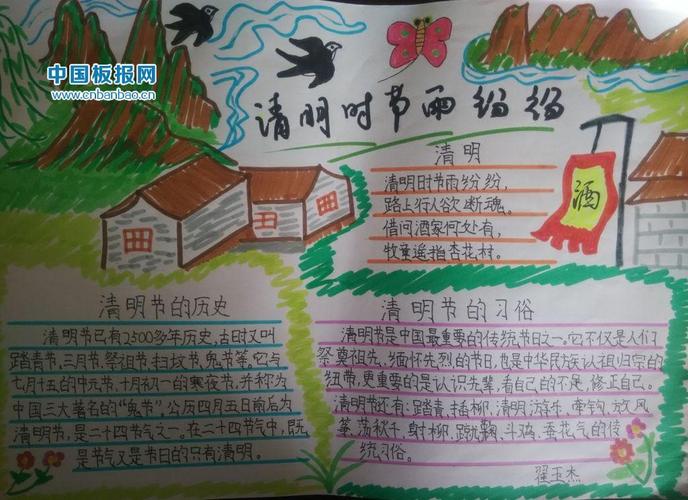 中国板报网
www.cnbanbao.cn
清明时节雨纷纷
清明
清明时节雨纷纷，
路上行人欲断魂。
借问酒家何处有，
牧童遥指杏花村。
酒
清明节的历史
清明节已有2500多年历史，古时又叫
踏青节、三月节、祭祖节、扫坟节、鬼节等。它与
七月十五的中元节、十月初一的寒夜节，并称为
中国三大著名的“鬼节”，公历四月五日前后为
清明节，是二十四节气之一。在二十四节气中，既
是节气又是节日的只有清明。
清明节的习俗
清明节是中国最重要的传统节日之一。它不仅是人们
祭奠祖先、缅怀先烈的节日，也是中华民族认祖归宗的
纽带，更重要的是认识先辈，看自己的不足，修正自己。
清明节还有：踏青、插柳、清明访年、牵钩、放风
筝、荡秋千、射柳、蹴鞠、斗鸡、蚕花气的传
统习俗。
翟玉杰